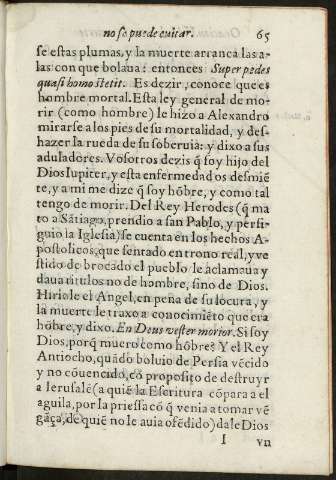 no se puede euitar. 65
se estas plumas, y la muerte arranca las a-
las con que bolaua: entonces Super pedes
quasi homo stetit. Es dezir, conoce que es
hombre mortal. Esta ley general de mo-
rir (como hombre) le hizo a Alexandro
mirarse a los pies de su mortalidad, y des-
hazer la rueda de su soberuia: y dixo a sus
aduladores. Vosotros dezis q̃ soy hijo del
Dios Iupiter, y esta enfermedad os desmiẽ
te, y a mi me dize q̃ soy hõbre, y como tal
tengo de morir. Del Rey Herodes (q̃ ma
to a Sãtiago, prendio a san Pablo, y persi-
guio la Iglesia) se cuenta en los hechos A-
postolicos, que sentado en trono real, y ve
stido de brocado el pueblo le aclamaua y
daua titulos no de hombre, sino de Dios.
Hiriole el Angel, en pena de su locura, y
la muerte le traxo a conocimiẽto que era
hõbre, y dixo. En Deus vester morior. Si soy
Dios, porq̃ muero como hõbre? Y el Rey
Antiocho, quãdo boluio de Persia vẽcido
y no cõuencido, cõ proposito de destruyr
a Ierusalẽ (a quiẽ la Escritura cõpara a el
aguila, por la priessa cõ q̃ venia a tomar vẽ
gãça, de quiẽ no le auia ofẽdido) dale Dios
I vn